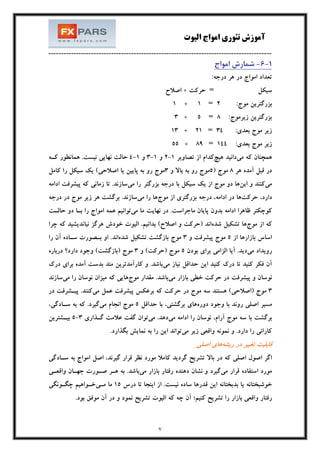 FXPARS
www.fxpars.com
آموزش تئوری امواج الیوت
۱-۶- شمارش امواج
تعداد امواج در هر درجه:
سیکل = حرکت + اصلاح
بزرگترین موج: ۲ = ۱ + ۱
بزرگترین زیرموج: ۸ = ۵ + ۳
زیر موج بعدی: ۳۴ = ۲۱ + ۱۳
زیر موج بعدی: ۱۴۴ = ۸۹ + ۵۵
همچنان که می‌دانید هیچ‌کدام از تصاویر ۱-۲ و ۱-۳ و ۱-۴ حالت نهایی نیست. همانطور کـه
در قبل آمده هر ۸ موج (۵موج رو به بالا و ۳موج رو به پایین یا اصلاحی) یک سیکل را کامل
می‌کنند و این‌ها دو موج از یک سیکل با درجه بزرگتر را می‌سازند. تا زمانی که پیشرفت ادامه
دارد، حرکت‌ها در ادامه، درجه بزرگتری از موج‌ها را می‌سازند. برگشت هر زیر موج در درجه
کوچکتر ظاهرا ادامه بدون پایان ماجراست. در نهایت ما می‌توانیم همه امواج را بـا دو حالـت
که از موج‌ها تشکیل شده‌اند (حرکت و اصلاح) بدانیم. الیوت خودش هرگز نیاندیشید که چرا
اساس بازارها از ۵ موج پیشرفت و ۳ موج بازگشت تشکیل شده‌اند. او بـصورت سـاده آن را
رویداد می‌دید. آیا الزامی برای بودن ۵ موج (حرکت) و ۳ موج (بازگشت) وجود دارد؟ درباره
آن فکر کنید تا درک کنید این حداقل نیاز می‌باشد. و کارآمدترین متد بدست آمده برای درک
نوسان و پیشرفت در حرکت خطی بازار می‌باشد. مقدار موج‌هایی که میزان نوسان را می‌سازند
۳ موج (اصلاحی) هستند سه موج در حرکت که برعکس پیشرفت عمل می‌کنند. پیـشرفت در
مسیر اصلی روند با وجود دوره‌های برگشتی، با حداقل ۵ موج انجام می‌گیرد. که به سـادگی،
برگشت با سه موج آرام، نوسان را ادامه می‌دهد. می‌توان گفت علامت گـذاری ۳-۵ بیـشترین
کارائی را دارد. و نمونه واقعی زیر می‌تواند این را به نمایش بگذارد.
قابلیت تغییر در ریشه‌های اصلی
اگر اصول اصلی که در بالا تشریح گردید کاملا مورد نظر قرار گیرند، اصل امواج به سـادگی
مورد استفاده قرار می‌گیرد و نشان دهنده رفتار بازار می‌باشد. به هـر صـورت جهـان واقعـی
خوشبختانه یا بدبختانه این قدرها ساده نیست. از اینجا تا درس ۱۵ ما مـی‌خـواهیم چگـونگی
رفتار واقعی بازار را تشریح کنیم؛ آن چه که الیوت تشریح نمود و در آن موفق بود.
۷